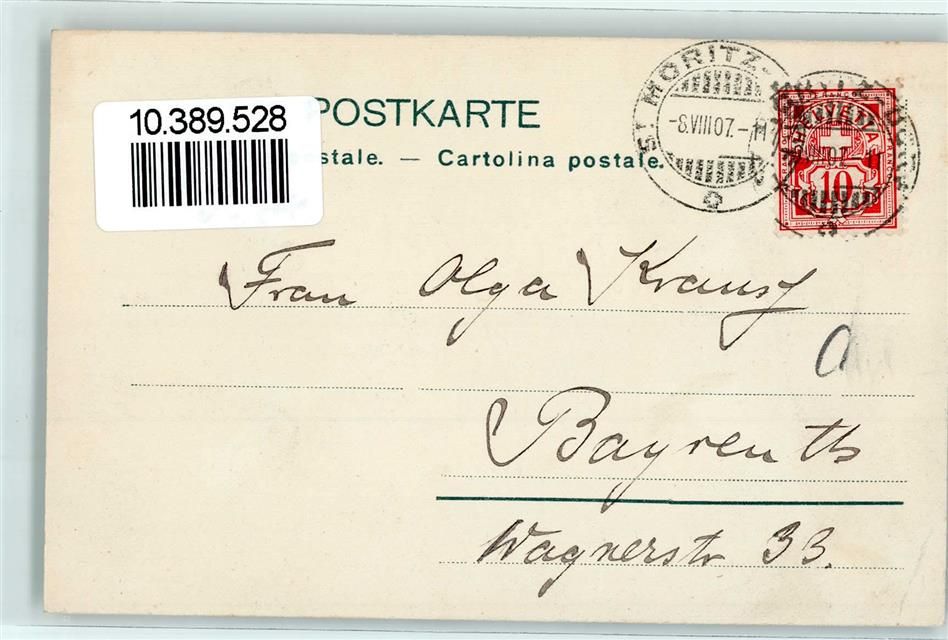 10.389.528
POSTKARTE
stale. — Cartolina postale.
ST MORITZ
-8.VIII.07.-
10
Frau Olga Krauss
a
Bayreuth
Wagnerstr 33.